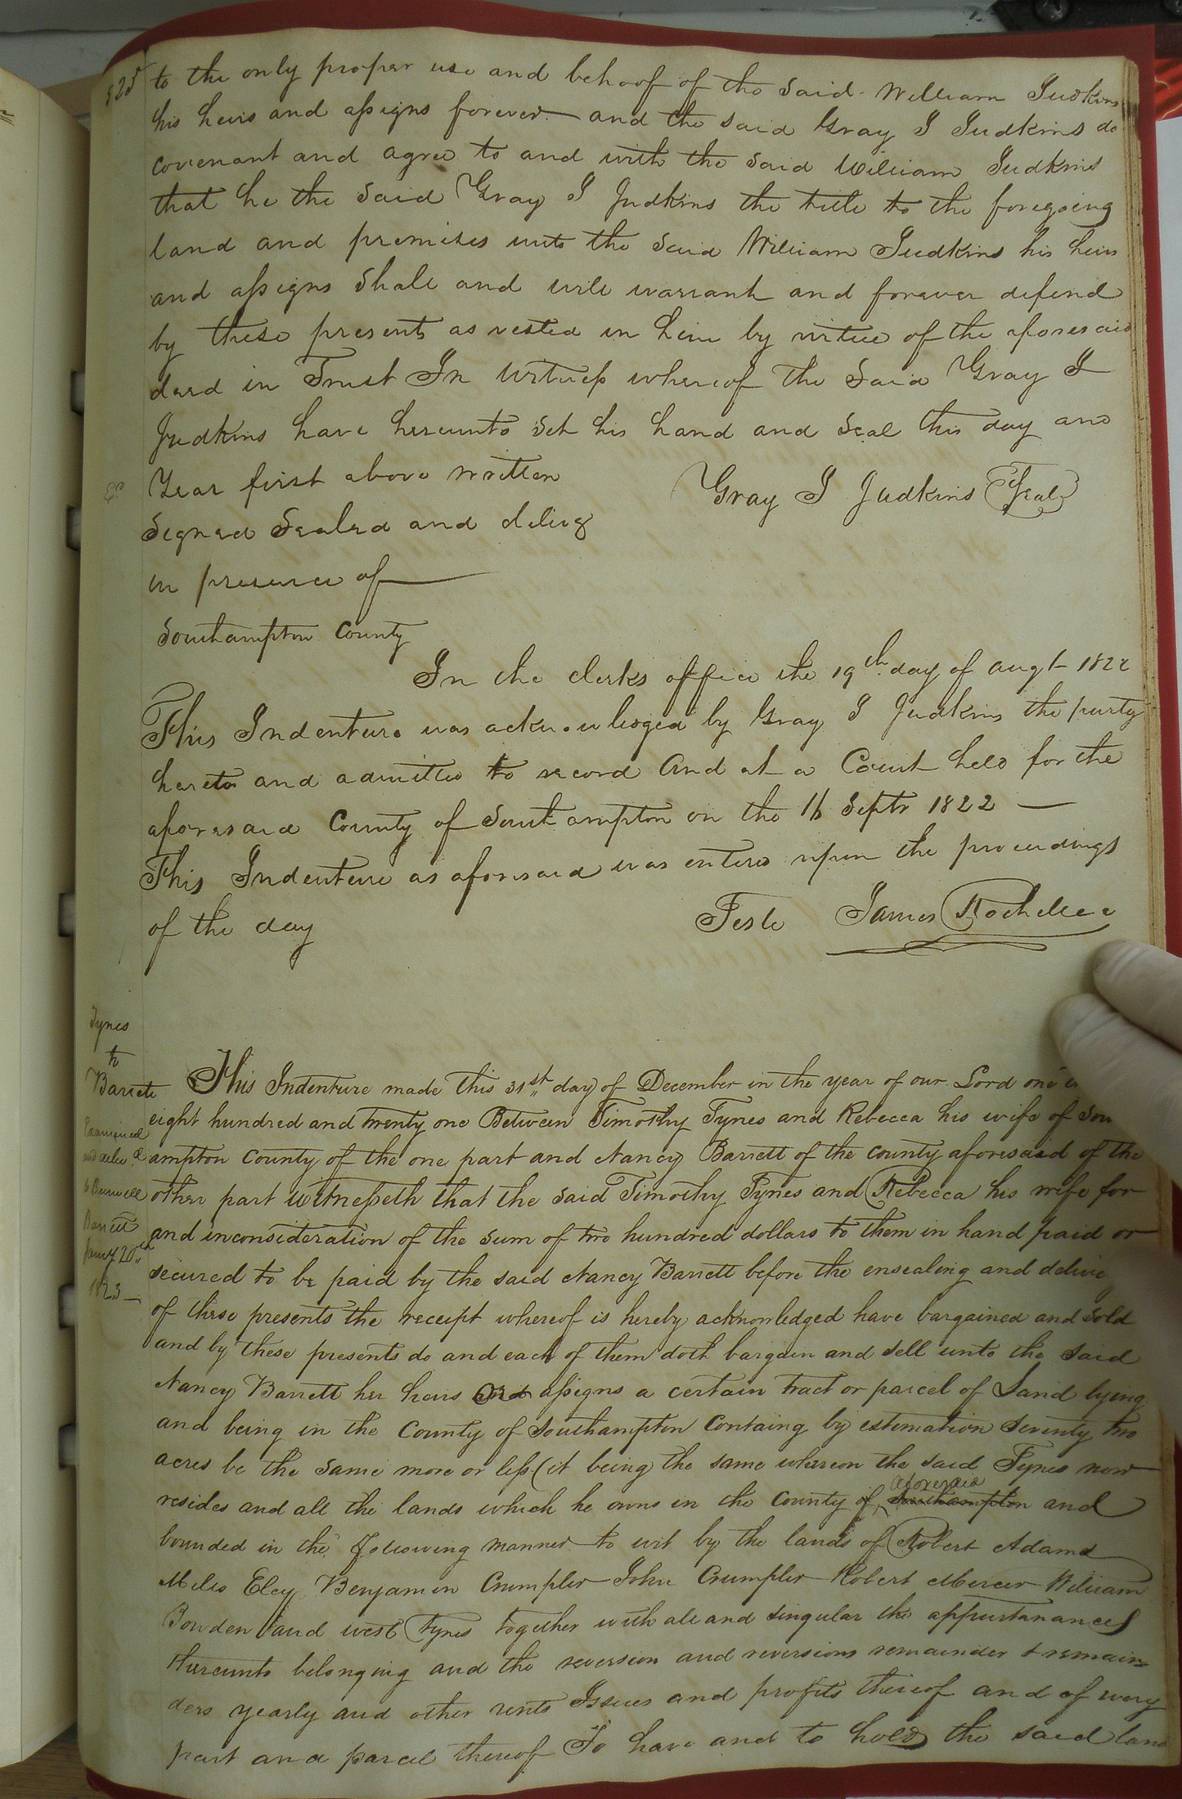 525
to the only proper use and behoof of the said William Judkins
his heirs and assigns forever and the said Gray J Judkins do
covenant and agree to and with the said William Judkins
that he the said Gray J Judkins the title to the foregoing
land and premises unto the said William Judkins his heirs
and assigns shall and will warrant and forever defend
by these presents as vested in him by virtue of the aforesaid
deed in Trust In Witness whereof the said Gray J
Judkins have hereunto set his hand and seal this day and
Year first above written Gray J Judkins Seal
Signed Sealed and deliv
in presence of
Southampton County
In the clerks office the 19th day of augt 1822
This Indenture was acknowledged by Gray J Judkins the party
hereto and admitted to record And at a Court held for the
aforesaid County of Southampton on the 16 Septr 1822
This Indenture as aforesaid was entered upon the proceedings
of the day Teste James Rochelle
Tynes
to
Barrett
Examined
and delivd
to Burwell
Barrett
20th
1823
This Indenture made this 31st day of December in the year of our Lord one
eight hundred and twenty one Between Timothy Tynes and Rebecca his wife of Sou
ampton County of the one part and Nancy Barrett of the county aforesaid of the
other part Witnesseth that the said Timothy Tynes and Rebecca his wife for
and in consideration of the sum of two hundred dollars to them in hand paid or
secured to be paid by the said Nancy Barrett before the ensealing and delive
of these presents the receipt whereof is hereby acknowledged have bargained and sold
and by these presents do and each of them doth bargain and sell unto the said
Nancy Barrett her heirs and assigns a certain tract or parcel of Land lying
and being in the County of Southampton Containg by estimation Seventy two
acres be the same more or less (it being the same whereon the said Tynes now
resides and all the lands which he owns in the County of aforesaid Southampton and
bounded in the following manner to wit by the lands of Robert Adams
Mills Eley Benjamin Crumpler John Crumpler Robert Mercer William
Bowden and West Tynes together with all and singular the appurtanances
thereunto belonging and the reversion and reversions remainder & remain=
ders yearly and other rents Issues and profits thereof and of every
part and parcel thereof To have and to hold the said land